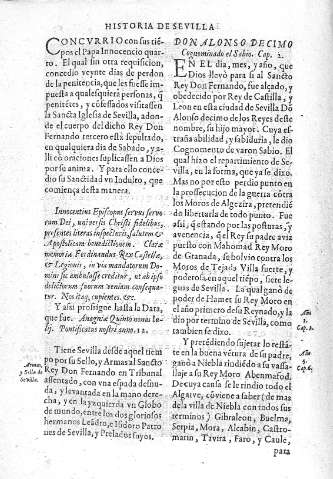 HISTORIA DE SEVILLA
CONCURRIO con sus tiē-
pos el Papa Innocencio quar-
to. El qual sin otra requisicion,
concedio veynte dias de perdon
de la penitencia, que les fuesse im-
puesta a qualesquiera personas, q̄
penitētes, y cōfessados visitassen
la Sancta Iglesia de Sevilla, adon-
de el cuerpo del dicho Rey Don
Fernando tercero está sepultado,
en qualquiera dia de Sabado, y a-
lli cō oraciones suplicassen a Dios
por su anima. Y para ello conce-
dio su Sanctidad vn Indulto, que
comiença desta manera.
Innocentius Episcopus servus servo-
rum Dei, universis Christi fidelibus,
presentes literas inspecturis, salutem &
Apostolicam benedictionem. Claræ
memoriæ Ferdinandus Rex Castellæ,
& Legionis, in via mandatorum Domi-
ni sic ambulasse creditur, ut ab ipso
delictorum suorum veniam consequa-
tur. Nos itaq; cupientes. &c.
Y assi prosigue hasta la Data,
que fue. Anagniæ Quinto nonas Iu-
lij. Pontificatus nostri anno. 12.
Tiene Sevilla desde aquel tiem-
po por su Sello, y Armas al Sancto
Rey Don Fernando en Tribunal
assentado, con vna espada desnu-
da, y levantada en la mano dere-
cha, y en la yzquierda vn Globo
de mundo, entre los dos gloriosos
hermanos Leādro, e Isidoro Patro
nes de Sevilla, y Prelados suyos.
Armas,
y Sello de
Sevilla.
DON ALONSO DECIMO
Cognominado el Sabio. Cap. 2.
EN EL dia, mes, y año, que
Dios llevó para si al Sancto
Rey Don Fernando, fue alçado, y
obedecido por Rey de Castilla, y
Leon en esta ciudad de Sevilla Dō
Alonso decimo de los Reyes deste
nombre, su hijo mayor. Cuya es-
traña abilidad, y sabiduria, le dio
Cognomento de varon Sabio. El
qual hizo el repartimiento de Se-
villa, en la forma, que ya se dixo.
Mas no por esto perdio punto en
la prosecucion de la guerra cōtra
los Moros de Algezira, pretendiē
do libertarla de todo punto. Fue
assi, q̄ estando por las posturas, y
avenencia, q̄ el Rey su padre avia
puesto con Mahomad Rey Moro
de Granada, se bolvio contra los
Moros de Tejada Villa fuerte, y
poderosa en aquel tiēpo, siete le-
guas de Sevilla. La qual ganó de
poder de Hamet su Rey Moro en
el año primero de su Reynado, y la
dio por termino de Sevilla, como
tambien se dixo.
Y pretēdiendo sujetar lo restā-
te en la buena vētura de su padre,
ganó a Niebla riudiēdo a su vassa-
llaje a su Rey Moro Abenmafod.
De cuya causa se le rindio todo el
Algarve, cōviene a saber (de mas
dela villa de Niebla con todos sus
terminos) Gibraleon, Huelma,
Serpia, Mora, Alcabin, Castro-
marin, Tavira, Faro, y Caule,
para
Año
Cap.
Año
Cap. 6.